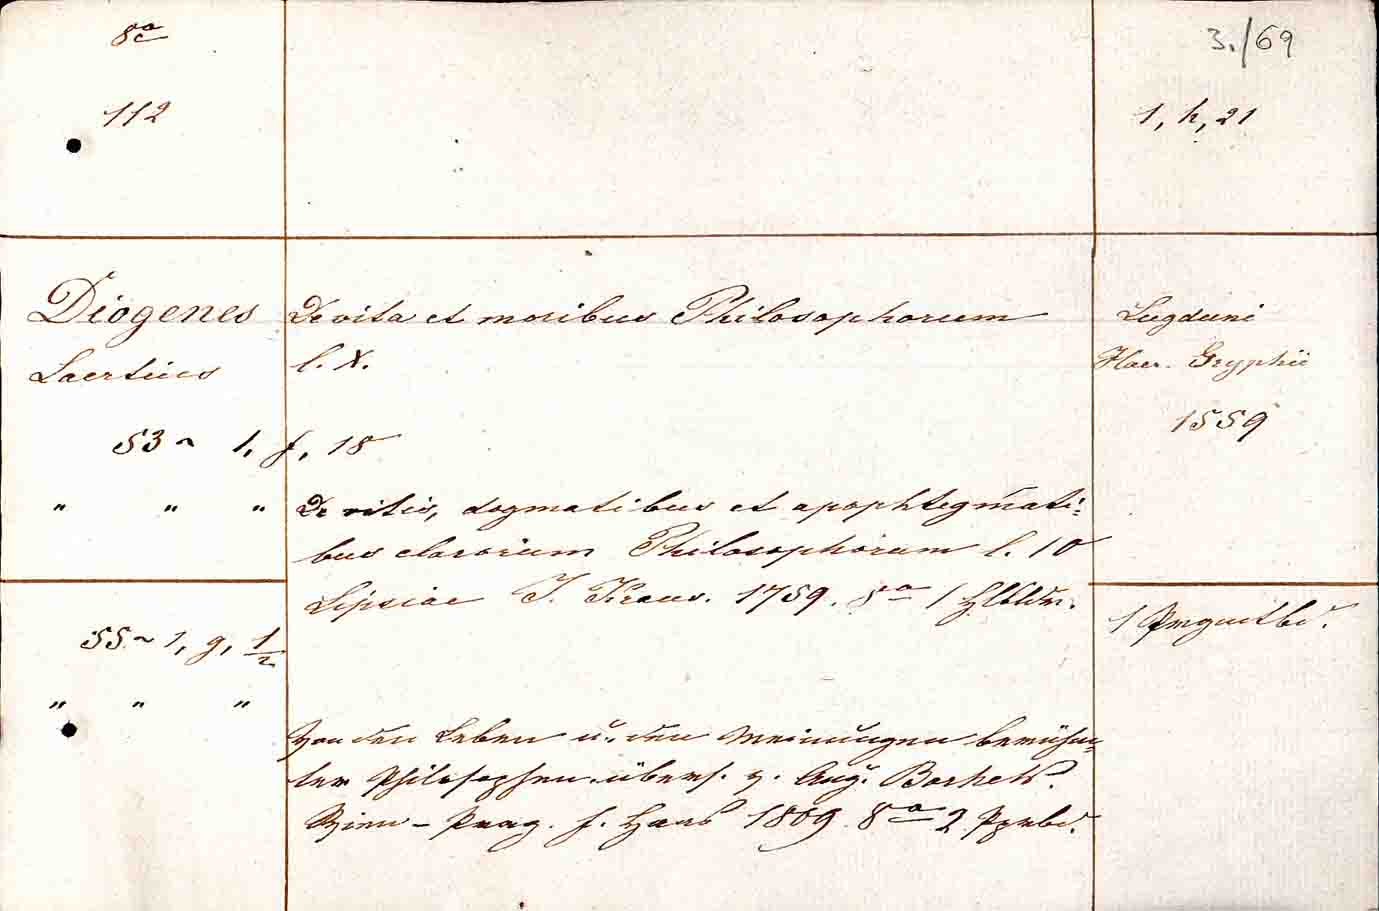 8°
3./69
112
1, h, 21
Diogenes De vita et moribus Philosophorum Lugduni
Laertius l. X. Haer. Gryphii
1559
53 ~ 1, f, 18
" " " De vitis, dogmatibus et apophtegmati-
bus clarorium Philosophorum l. 10
Lipsiae J. Kraus. 1759. 8° 1 Hlbldr.
1 Prgmtbd.
55 ~ 1, g, 1/2
" " "
Von den Leben u. den Meinungen berühm-
ter Philosophen. übers. v. Aug. Borheck.
Wien - Prag. f. Haas 1809. 8° 2 Pprbd.